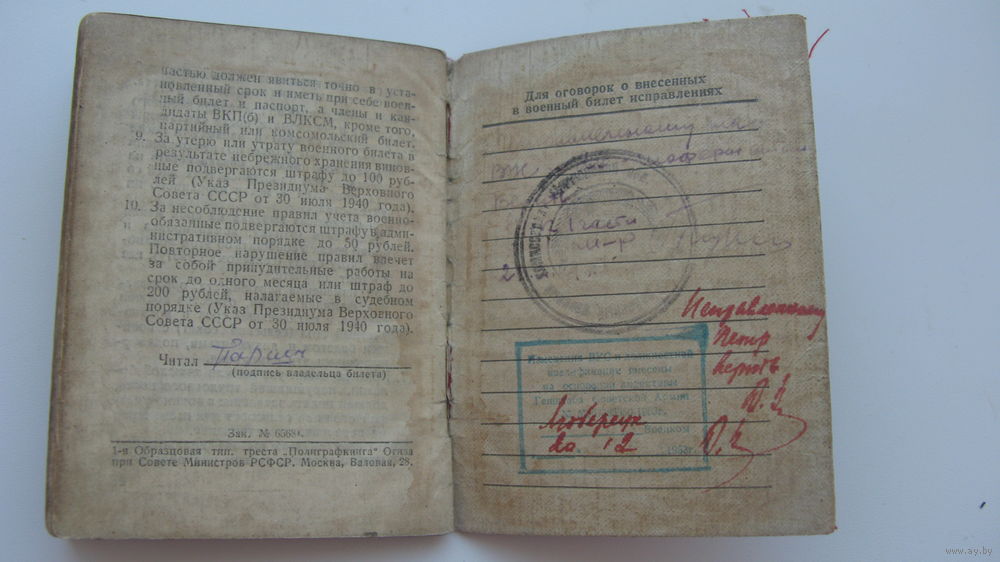 частью должен явиться точно в уста-
новленный срок и иметь при себе воен-
ный билет и паспорт, а члены и кан-
дидаты ВКП(б) и ВЛКСМ, кроме того,
партийный или комсомольский билет.
9. За утерю или утрату военного билета в
результате небрежного хранения винов-
ные подвергаются штрафу до 100 руб-
лей (Указ Президиума Верховного
Совета СССР от 30 июля 1940 года).
10. За несоблюдение правил учета военно-
обязанные подвергаются штрафу в адми-
нистративном порядке до 50 рублей.
Повторное нарушение правил влечет
за собой принудительные работы на
срок до одного месяца или штраф до
200 рублей, налагаемые в судебном
порядке (Указ Президиума Верховного
Совета СССР от 30 июля 1940 года).
Читал
(подпись владельца билета)
Зак. №
1-я Образцовая тип. треста „Полиграфкнига“ Огиза
при Совете Министров РСФСР. Москва, Валовая, 28.
Для оговорок о внесенных
в военный билет исправлениях
части
Исправленному
Петр
верить
Изменения ВУС и
квалификации внесены
на основании директивы
Генштаба Советской Армии
Военком
20 12 1953г
www.ay.by